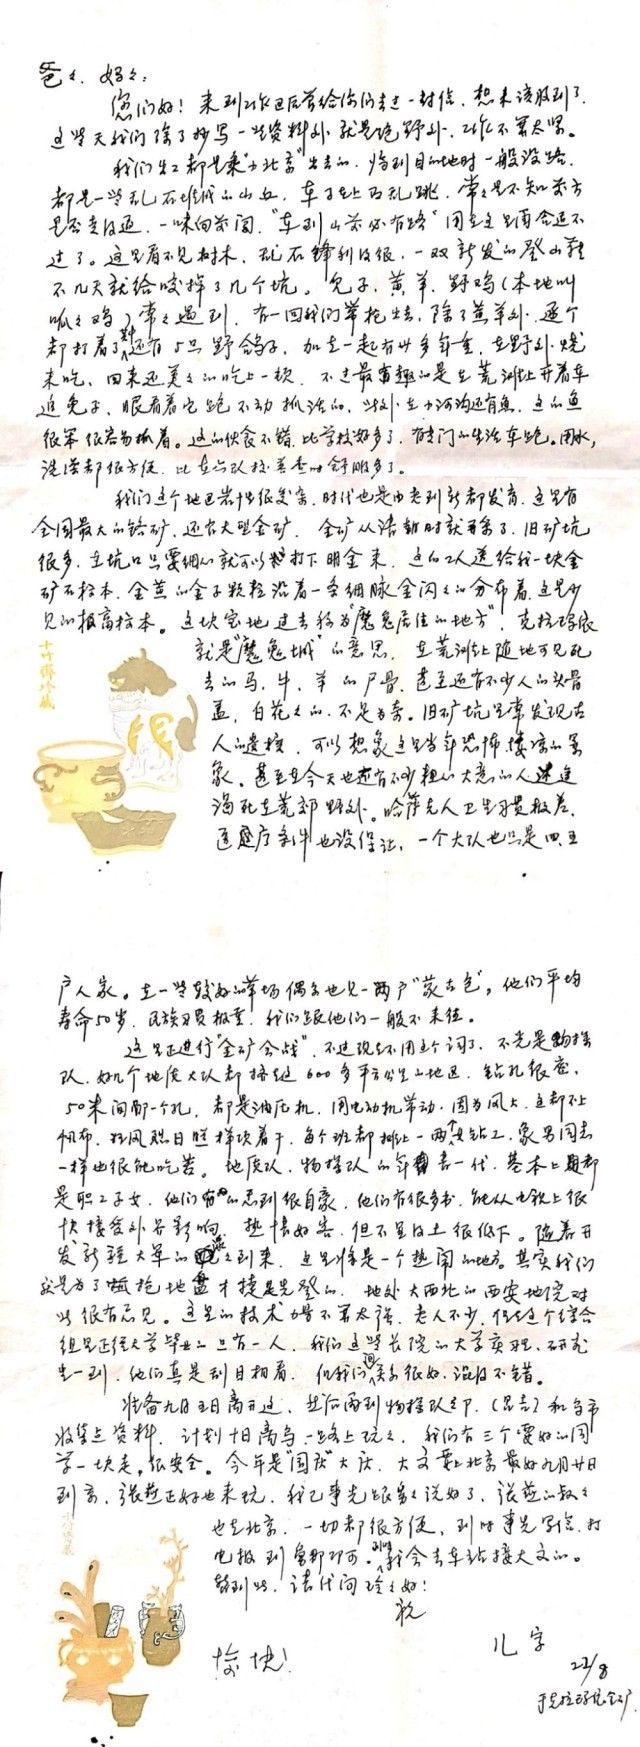 爸々、妈々：
您们好！来到工作区后曾给你们去过一封信，想来该收到了。
这些天我们除了抄写一些资料外，就是跑野外，工作不算太紧。
我们出工都是乘"小北京"出去的，将到目的地时一般没路，
都是一些乱石堆成的山丘，车子在上面乱跳，常々是不知前方
是否走得通，一味向前闯，"车到山前必有路"用在这里再合适不
过了。这里看不见树木，乱石锋利得很，一双新发的登山鞋
不几天就给咬掉了几个坑。兔子、黄羊、野鸡（本地叫
呱々鸡）常々遇到，有一回我们带枪出去，除了黄羊外，逐个
都打着了，还有5只野鸽子，加在一起有廿多斤重，在野外烧
来吃，回来还美々的吃上一顿，不过最有趣的是在荒滩上开着车
追兔子，眼看着它跑不动抓活的，此外在小河沟还有鱼，这的鱼
很笨很容易抓着。这的伙食不错，比学校好多了，有专门的生活车跑。用水，
洗澡都很方便，比在 队 时舒服多了。
我们这个地区岩性很复杂，时代也是由老到新都发育，这里有
全国最大的铬矿，还有大型金矿，金矿从清朝时就开采了，旧矿坑
很多，在坑口只要细心就可以打下明金来，这的工人送给我一块金
矿石标本，金黄的金子颗粒沿着一条细脉金闪々的分布着，这是少
见的极高标本。这块宝地过去称为"魔鬼居住的地方"，克拉玛依
就是"魔鬼城"的意思，在荒滩上随地可见死
去的马、牛、羊的尸骨，甚至还有不少人的头骨
盖，白花々的，不足为奇。旧矿坑里常发现古
人的遗物，可以想象这里当年恐怖、凄凉的景
象。甚至在今天也还有不少粗心大意的人迷途
渴死在荒郊野外。哈萨克人卫生习惯极差，
医疗条件也没保证，一个大队也只是四、五
十竹斋珍藏
户人家。在一些较好的草场偶尔也见一两户"蒙古包"，他们平均
寿命50岁，民族习惯极重，我们跟他们一般不来往。
这里正进行"金矿会战"，不过现在不用这个词了，不光是物探
队，好几个地质大队都挤在这600多平方公里山地里，钻孔很密，
50米间距一个孔，都是油压机，用电动机带动，因为风大，连都不上
帆布，狂风烈日照样顶着干，每个班都排上一两个女钻工，象男同志
一样也很能吃苦。地质队、物探队的年青一代，基本上都
是职工子女，他们 感到很自豪，他们有很多书，能从电视上很
快接受外界影响，热情好客，但不 很低下。随着开
发新疆大军的 到来，这里将是一个热闹的地方。其实我们
就是为了抢地盘才捷足先登的，地处大西北的西安地院对
此很有意见。这里的技术力量不算太强，老人不少，但在这个综合
组里正经大学毕业的只有一人，我们这些长院的大学实习、研究
生一到，他们真是刮目相看，但我们关系很好，混得不错。
准备九月五日离开这，然后再到物探队部（昌吉）和乌市
收集点资料，计划十日离乌，一路上玩々，我们有三个要好的同
学一块走，很安全。今年是"国庆"大庆，大文要上北京最好九月廿日
到京，张燕正好也来玩，我已事先跟 说好了，张燕的叔々
也在北京，一切都很方便，到时事先写信、打
电报到 那即可，到时我会去车站接大文的。
暂到此，请代问 好！
祝
愉快！
儿 字
22/8
于克拉玛依金矿